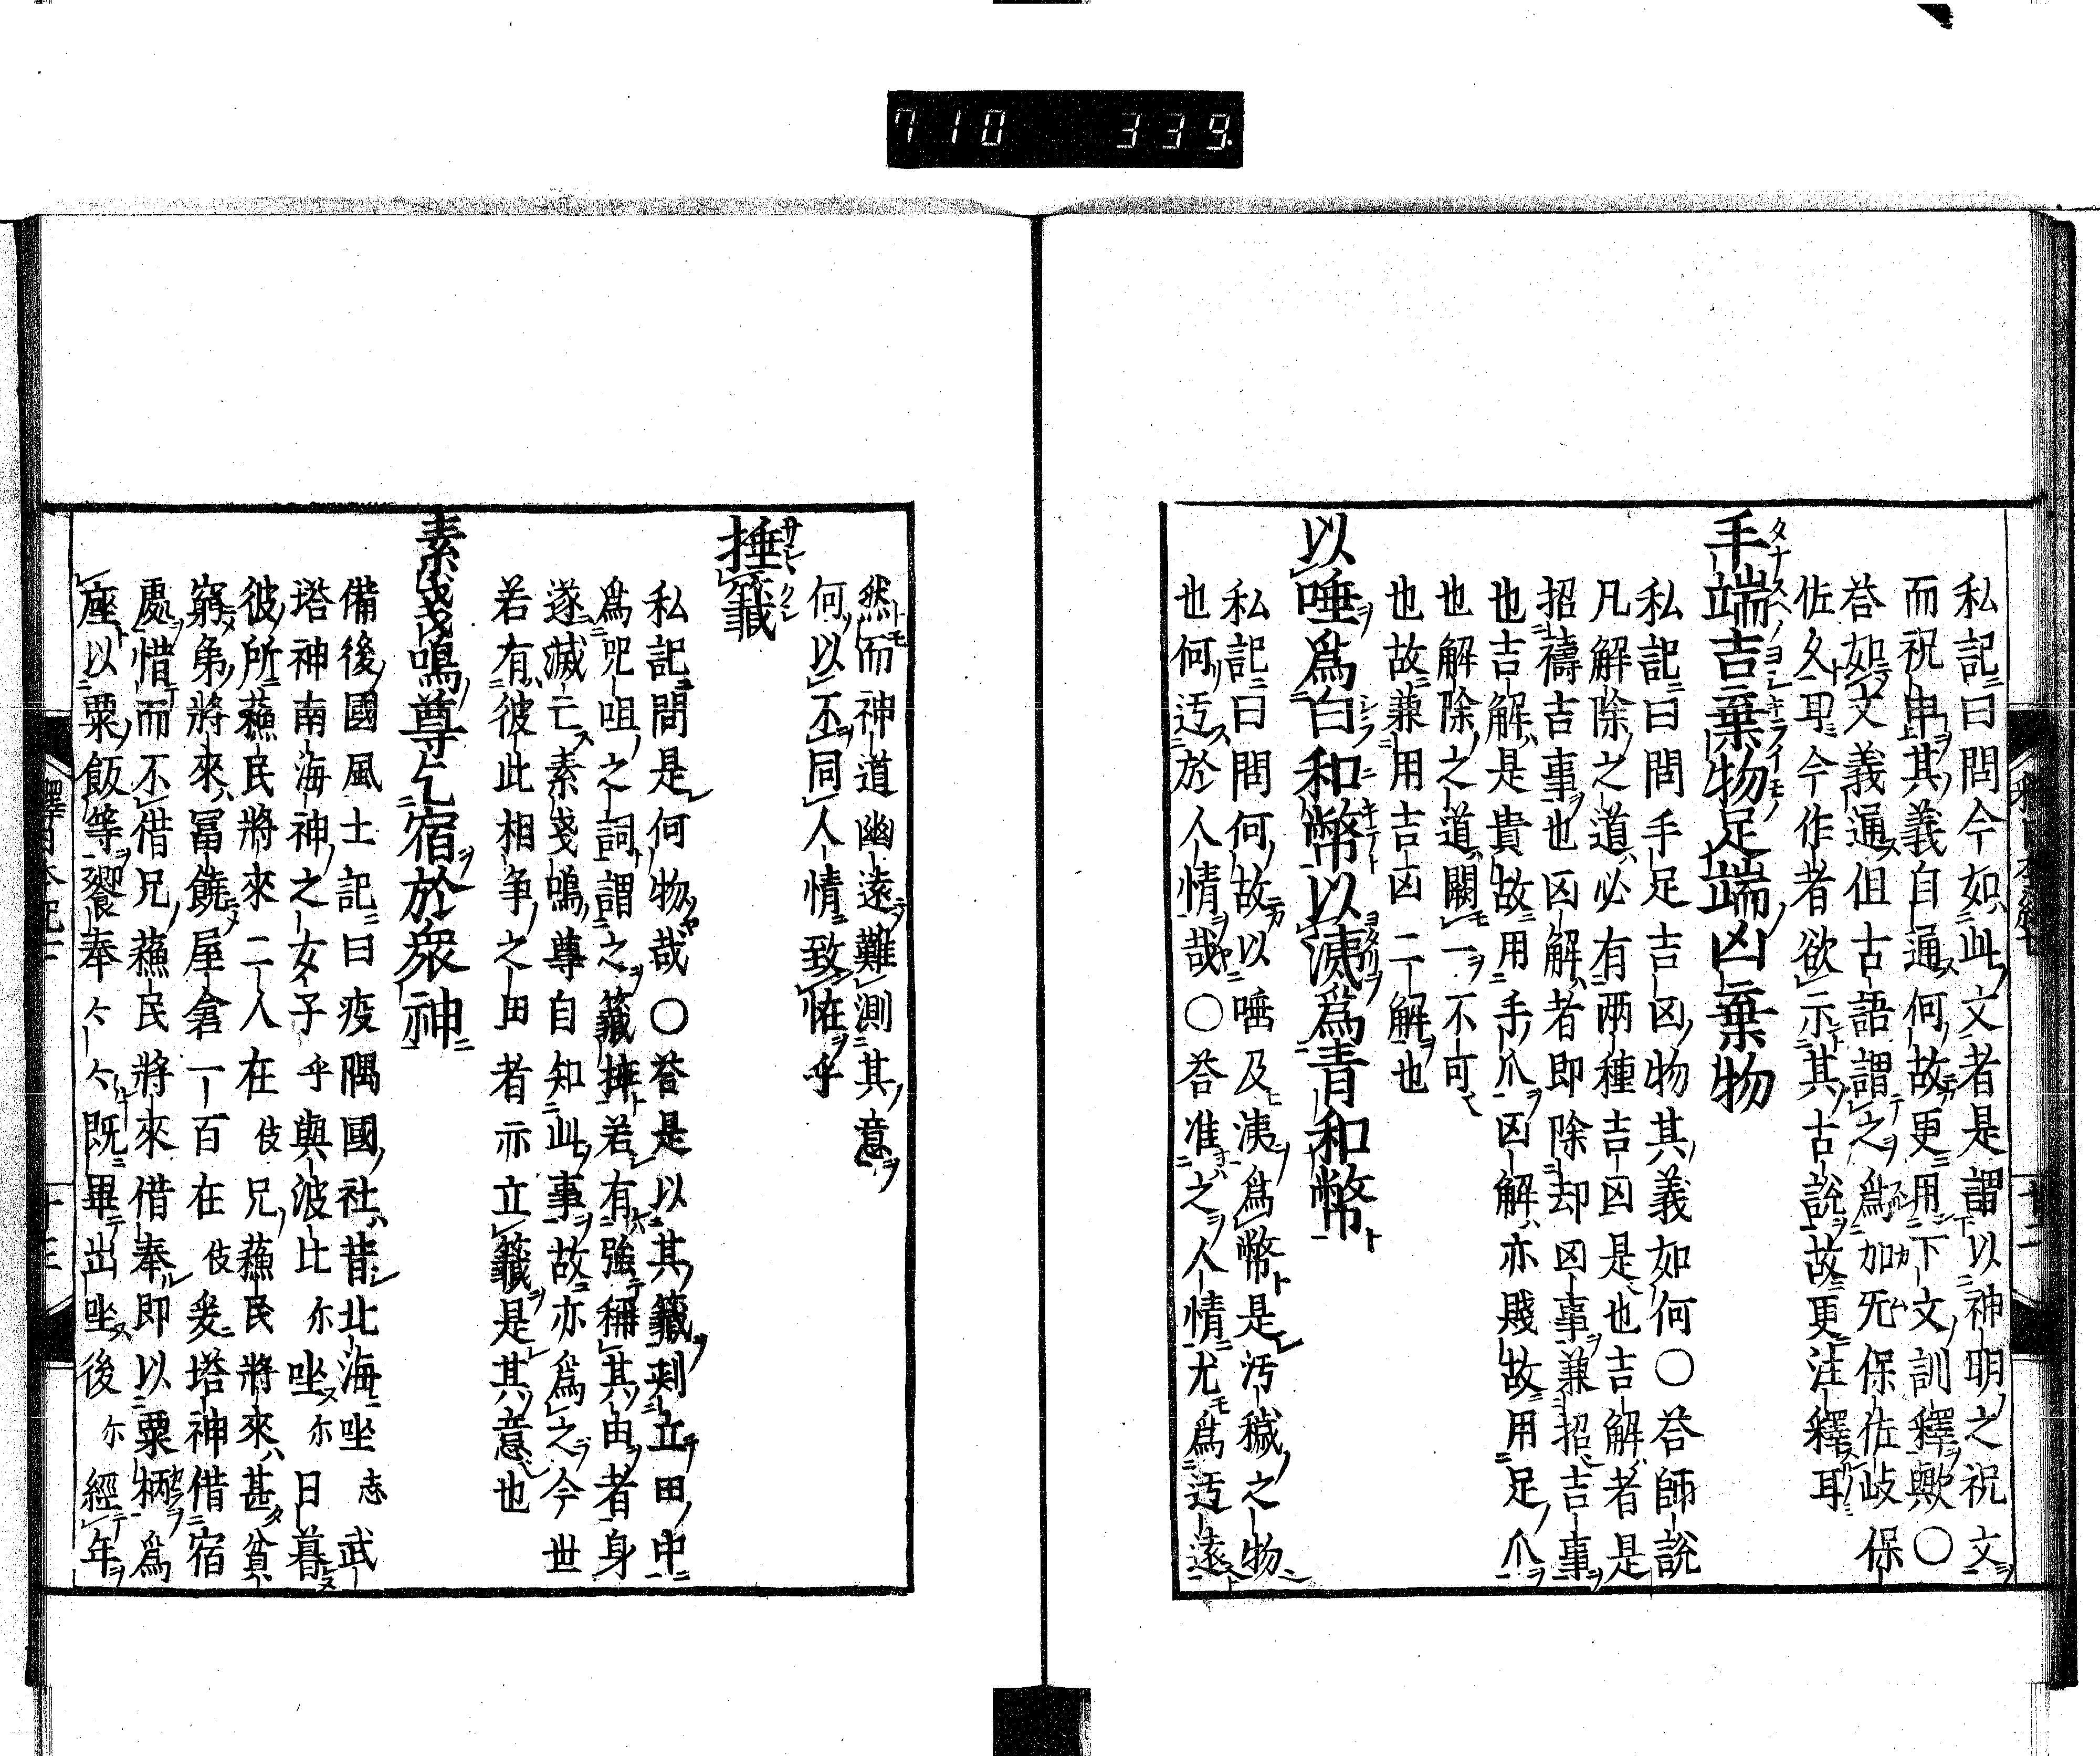 710 339.
私記曰問今如此文者是謂以神明之祝文
而祝申其義自通何故更用下文訓釋歟〇
荅如文義通但古語謂之爲加旡保佐岐保
佐久耳今作者欲示其古說故更注釋耳
手端吉棄物足端凶棄物
私記曰問手足吉凶物其義如何〇荅師說
凡解除之道必有两種吉凶是也吉解者是
招禱吉事也凶解者即除却凶事兼招吉事
也吉解是貴故用手爪凶解亦賎故用足爪
也解除之道闕一不可
也故兼用吉凶二解也
以唾爲白和幣以洟爲青和幣
私記曰問何故以唾及洟爲幣是汚穢之物
也何迃於人情哉〇荅准之人情尤爲迃遠
然而神道幽遠難測其意
何以不同人情致恠乎
捶籤
私記問是何物哉〇荅是以其籤刺立田中
爲咒咀之詞謂之籤捶若有強稱其由者身
遂滅亡素戔嗚尊自知此事故亦爲之今世
若有彼此相争之田者亦立籤是其意也
素戔嗚尊乞宿於衆神
備後國風土記曰疫隅國社昔北海坐志武
塔神南海神之女子乎與波比尓坐尓日暮
彼所蘓民將來二人在伎兄蘓民將來甚貧
窮弟將來冨饒屋倉一百在伎爰塔神借宿
處惜而不借兄蘓民將來借奉即以粟柄爲
座以粟飯等饗奉〻〻既畢出坐後尓經年